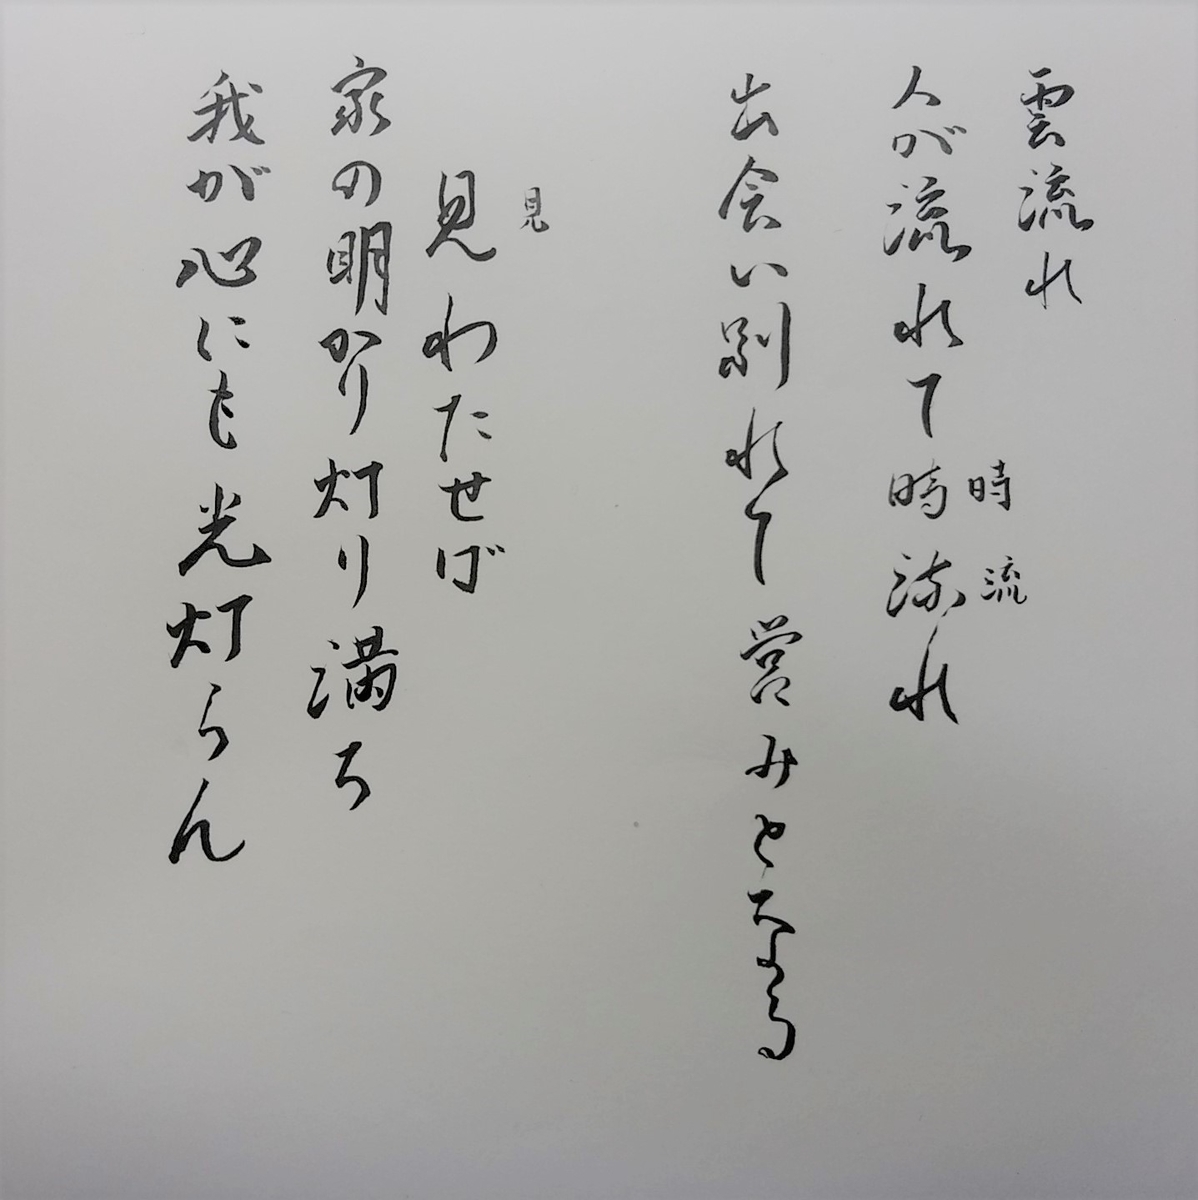 雲流れ
人が流れて時流れ
時
流
出会い別れて営みとなる
見
見わたせば
家の明かり灯り満ち
我が心にも光灯らん